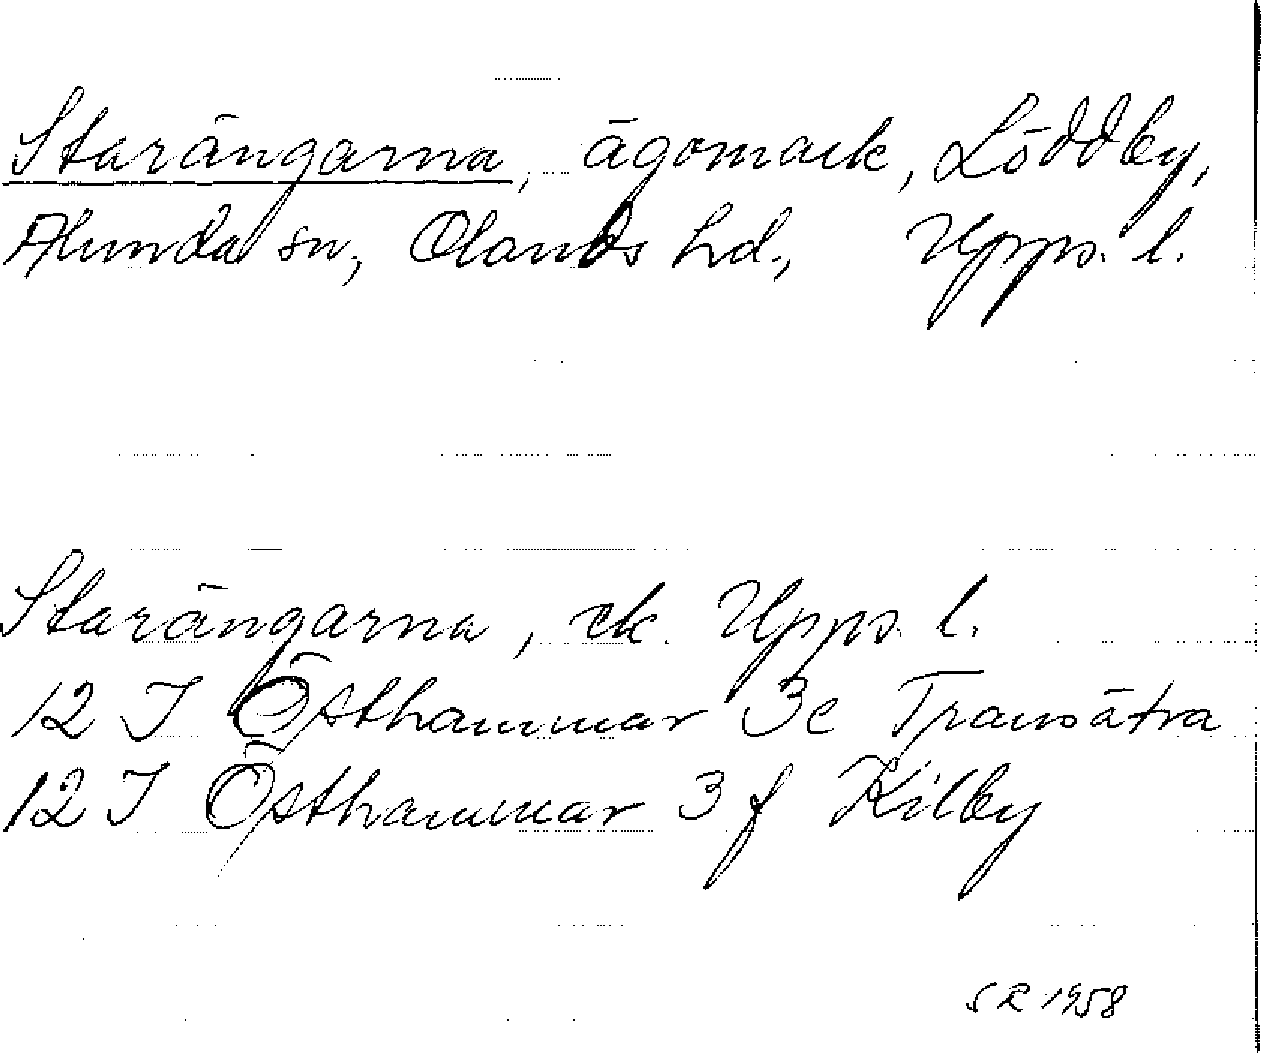 Starängarna, ägomark, Löddby,
Alunda sn, Olands hd., Upps. l.
Starängarna, ek. Upps. l.
12 I Östhammar 3e Transätra
12 I Östhammar 3 f Kilby
SR 1958